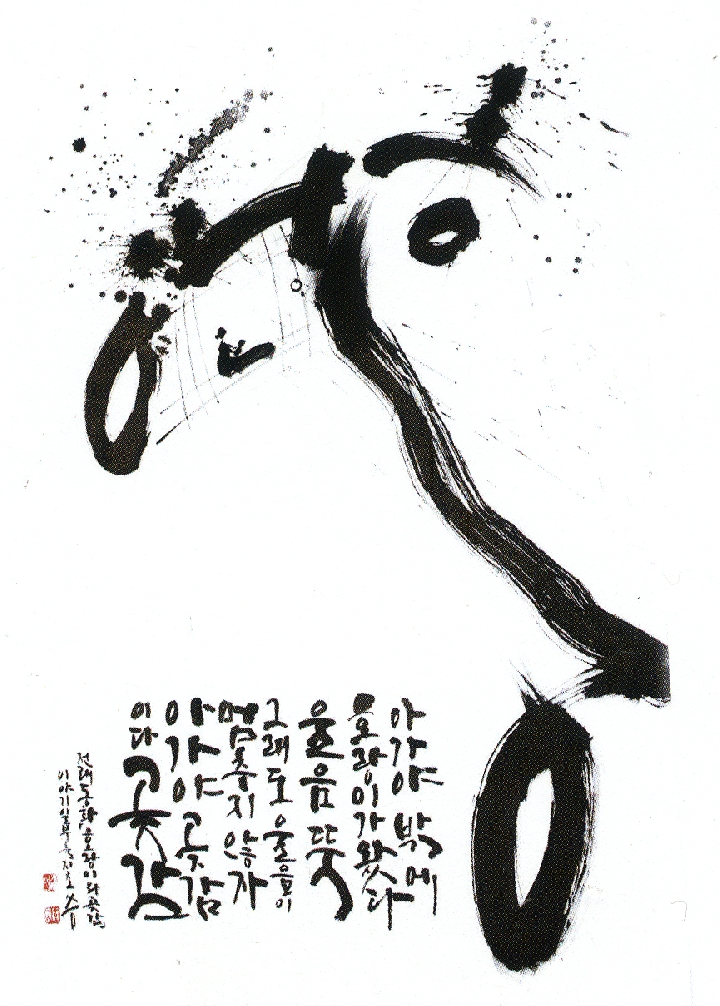 아가야 밖에
호랑이가 왔다
울음 뚝
그래도 울음이
멈추지 않자
아가야 곶감
이다 곶감
전래동화 호랑이와 곶감
이야기 일부를